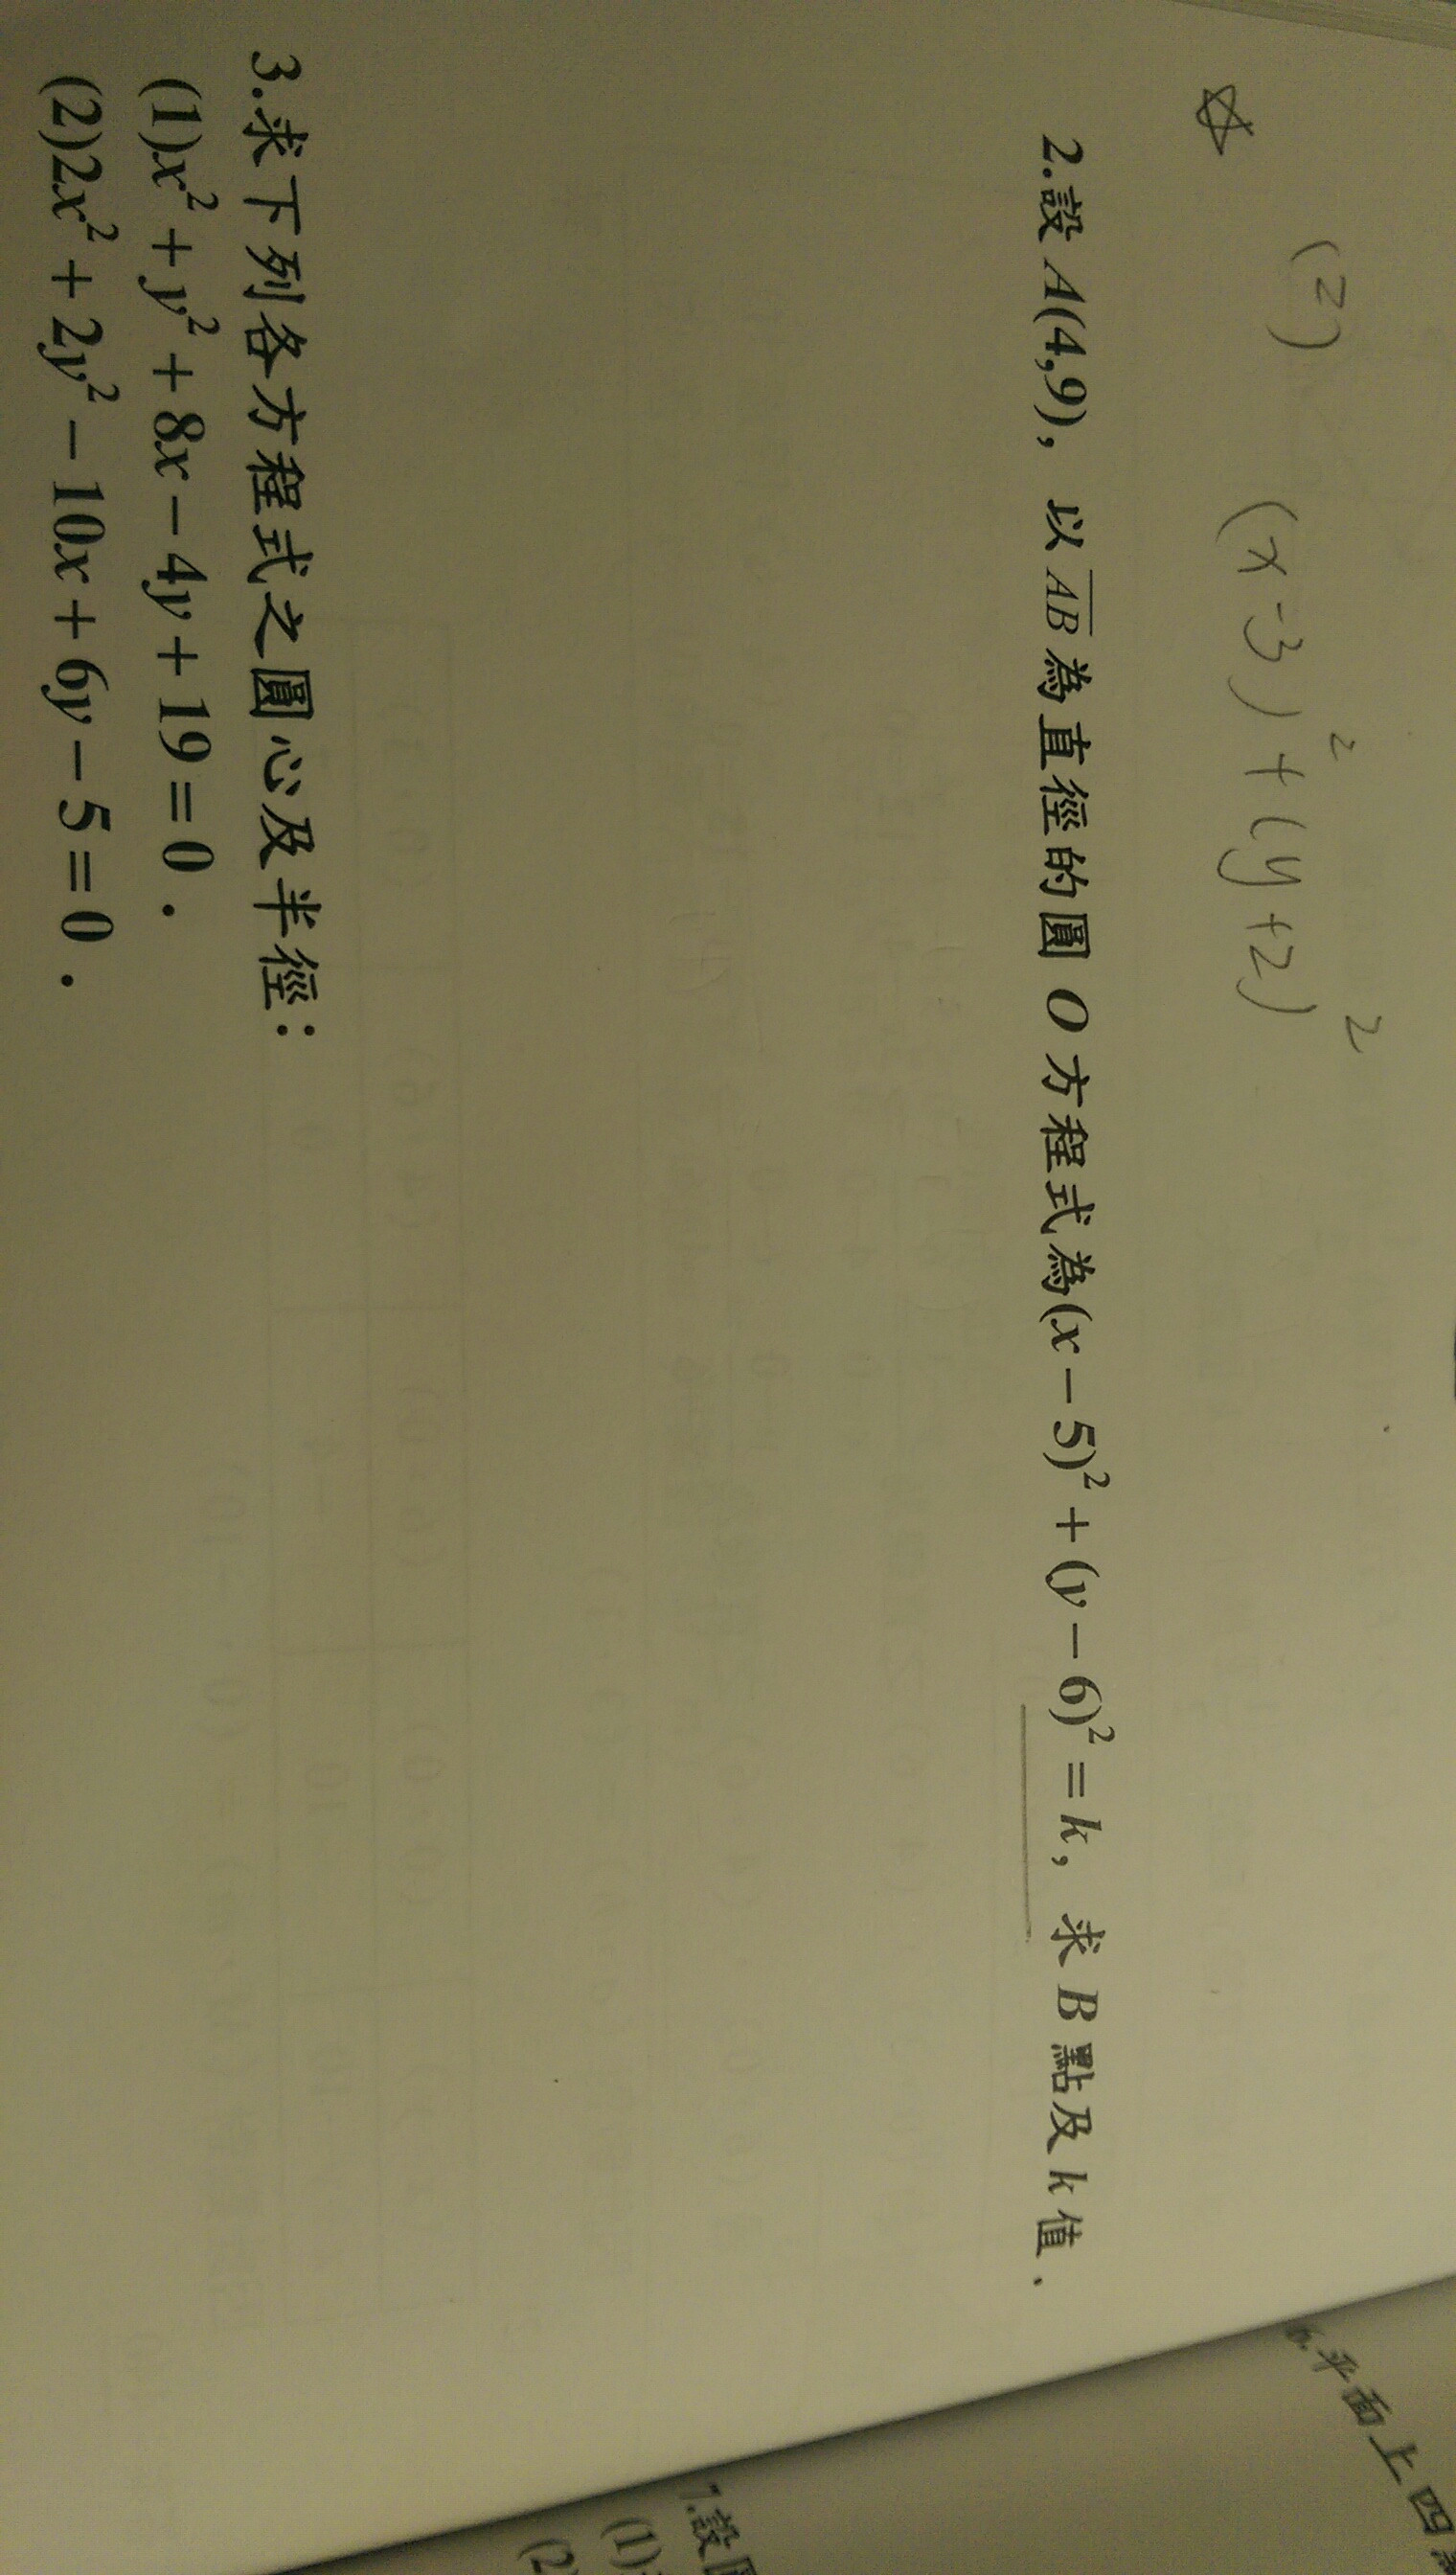 (2) (x-3)² + (y+2)²
2.設 A(4,9), 以 AB 為直徑的圓 O 方程式為(x－5)²＋(y－6)²＝k, 求 B 點及 k 值．
3.求下列各方程式之圓心及半徑：
(1)x²＋y²＋8x－4y＋19＝0．
(2)2x²＋2y²－10x＋6y－5＝0．
6.平面上四
7.設圓
(1)
(2)